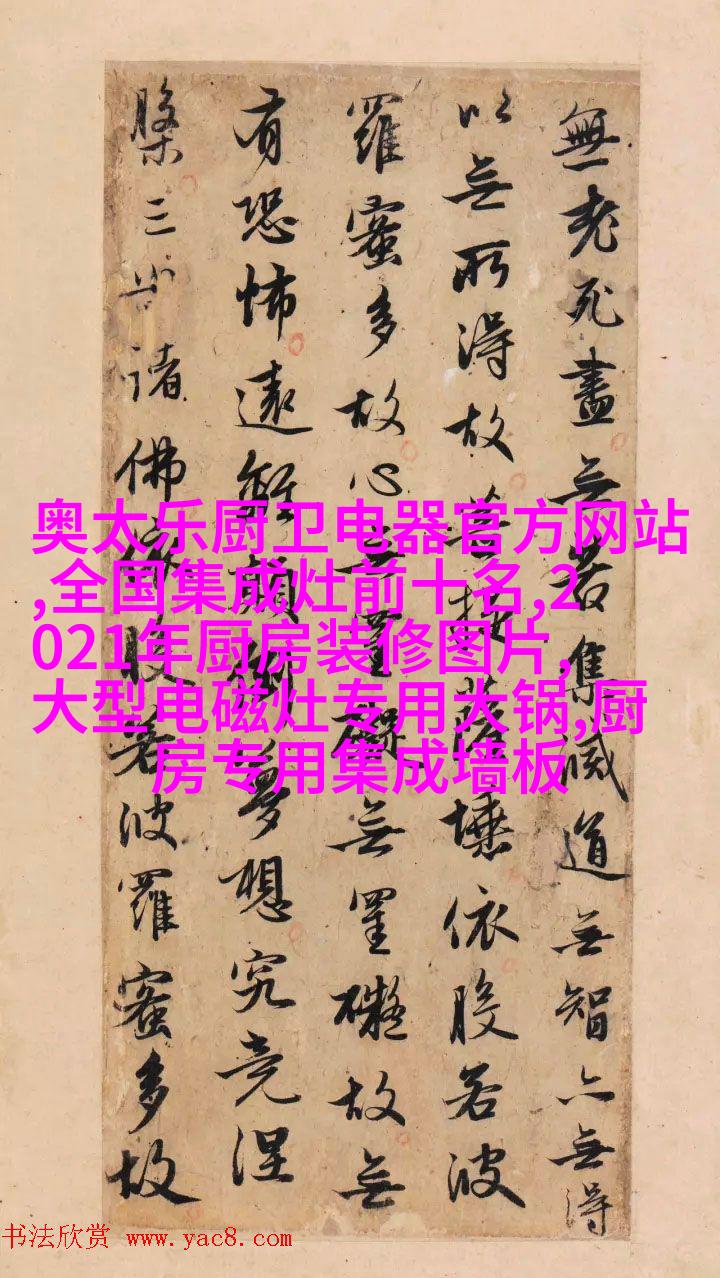 無老死盡无苦集滅道无智亦无得
以无所得故菩提薩埵依般若波
羅蜜多故心无罣礙无罣礙故无
有恐怖遠離顛倒夢想究竟涅
槃三世諸佛依般若波羅蜜多故
奥太乐厨卫电器官方网站
,全国集成灶前十名,2
021年厨房装修图片,
大型电磁灶专用大锅,厨
房专用集成墙板
书法欣赏 www.yac8.com